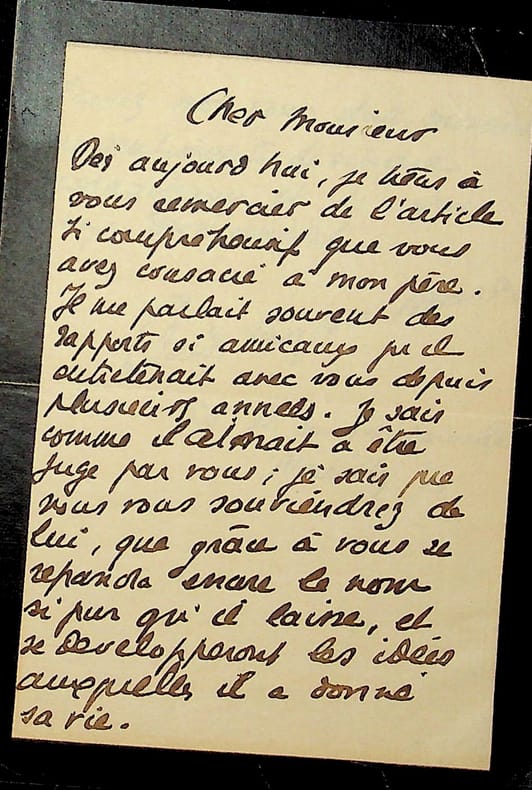 Cher Monsieur
Dès aujourd'hui, je tiens à
vous remercier de l'article
si compréhensif que vous
avez consacré à mon père.
Il me parlait souvent des
rapports si amicaux qu'il
entretenait avec vous depuis
plusieurs années. Je sais
comme il aimait à être
jugé par vous ; je sais que
vous vous souviendrez de
lui, que grâce à vous se
répandra encore le nom
si pur qu'il laisse, et
se développeront les idées
auxquelles il a donné
sa vie.